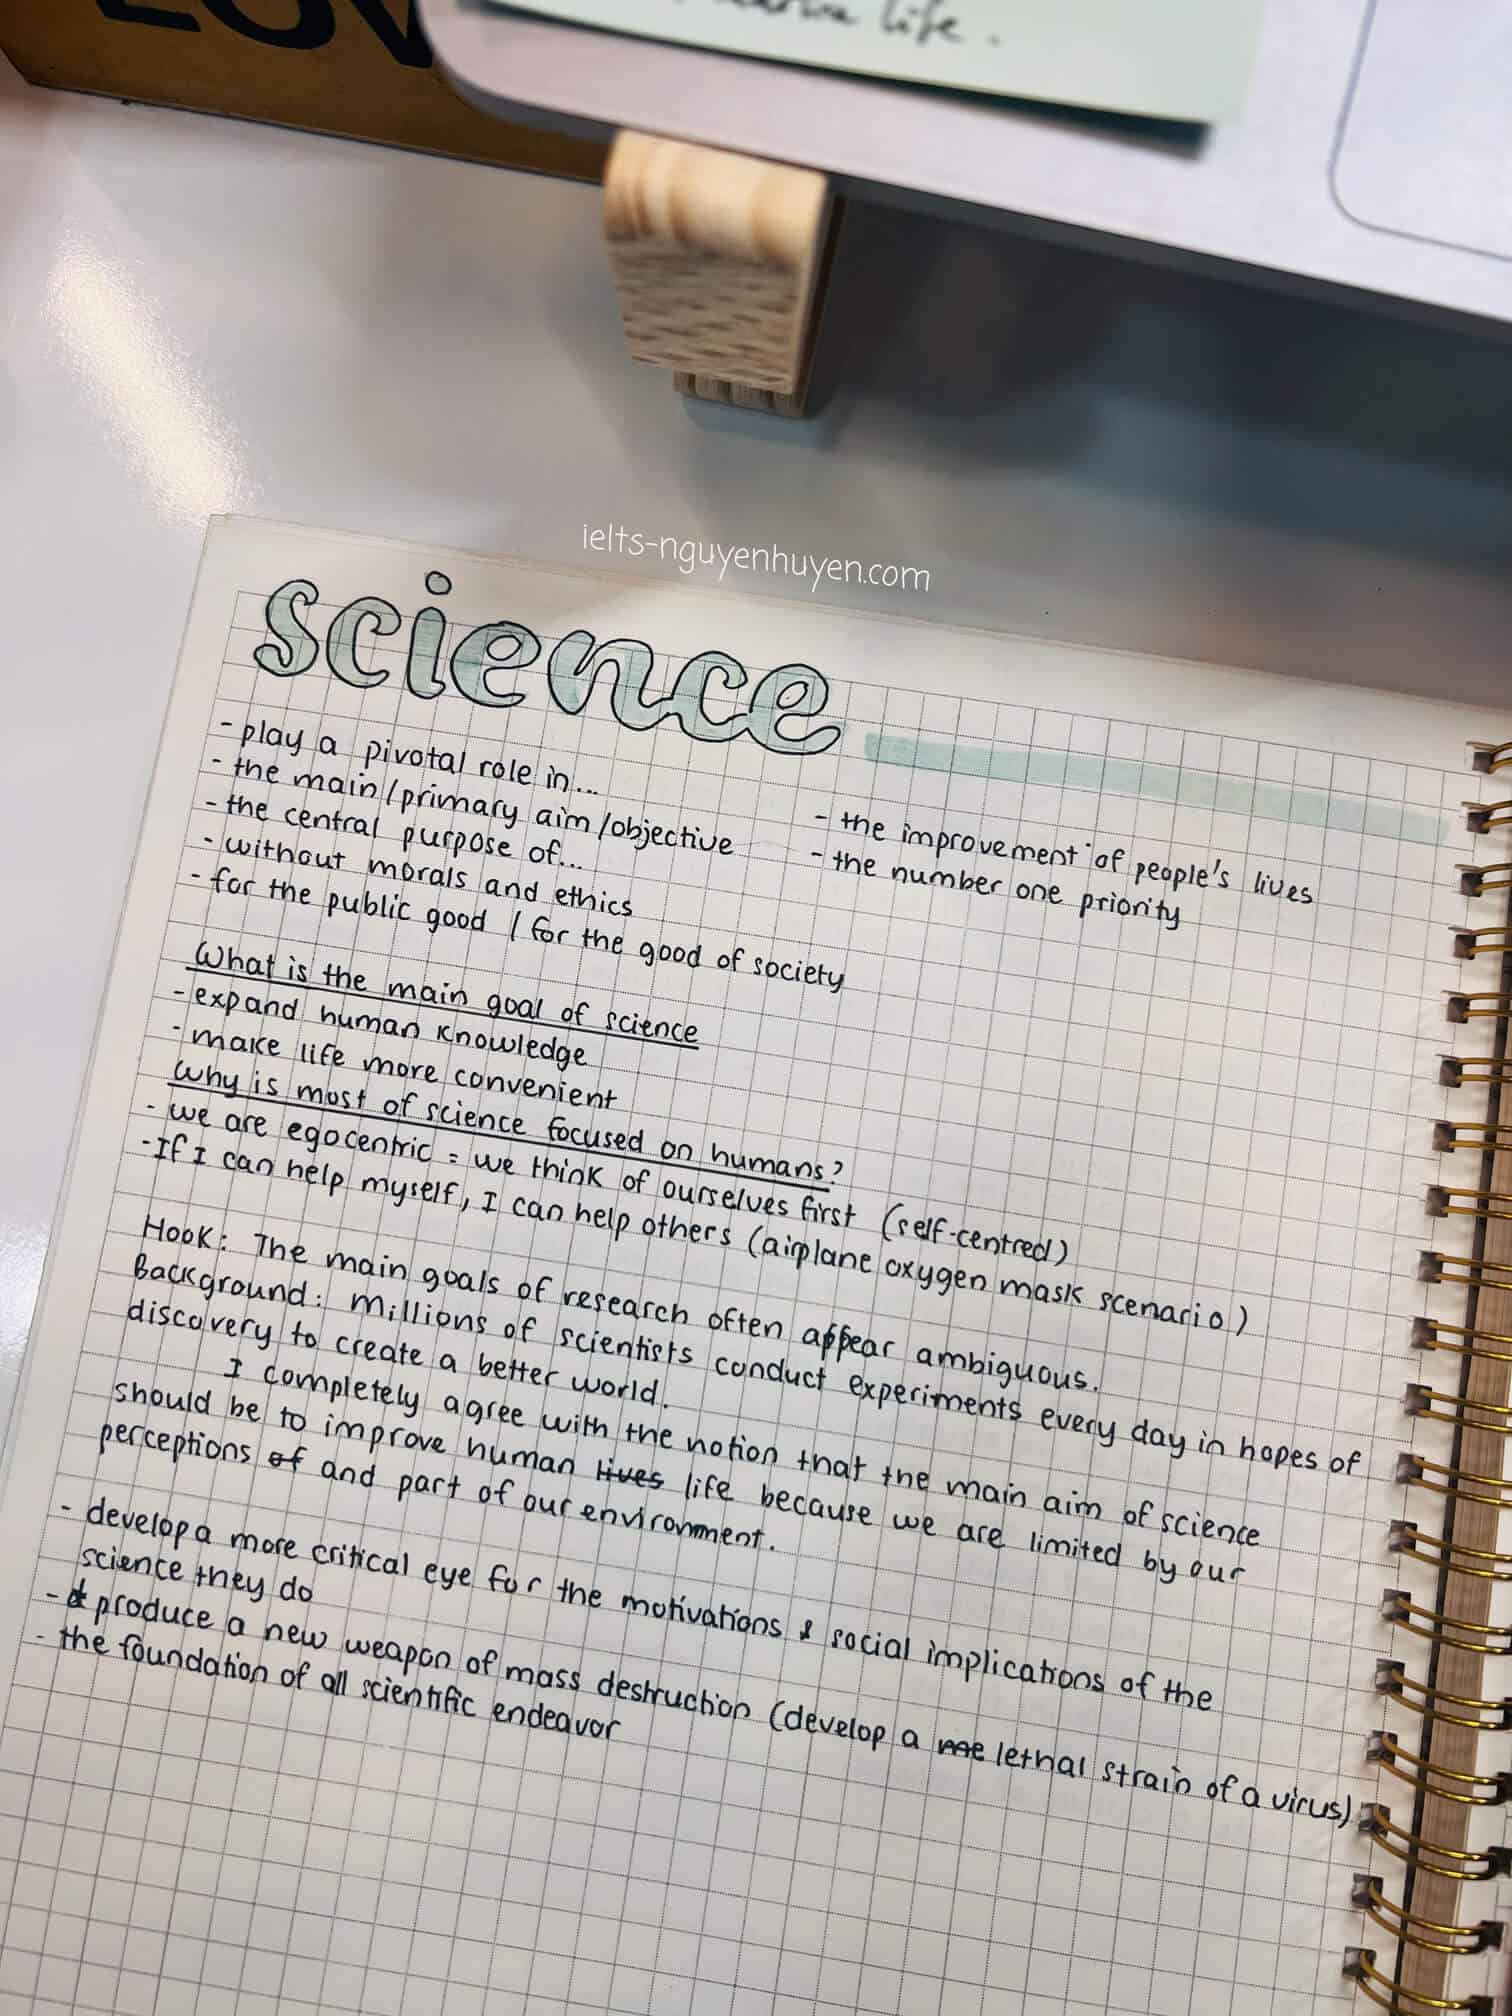 LOV
life.
ielts-nguyenhuyen.com
science
- play a pivotal role in...
- the main/primary aim/objective
- the central purpose of...
- without morals and ethics
- for the public good / for the good of society
- the improvement of people's lives
- the number one priority
What is the main goal of science
- expand human knowledge
- make life more convenient
Why is most of science focused on humans?
- we are egocentric = we think of ourselves first (self-centred)
- If I can help myself, I can help others (airplane oxygen mask scenario)
Hook: The main goals of research often appear ambiguous.
Background: Millions of scientists conduct experiments every day in hopes of
discovery to create a better world.
I completely agree with the notion that the main aim of science
should be to improve human lives life because we are limited by our
perceptions of and part of our environment.
- develop a more critical eye for the motivations & social implications of the
science they do
- produce a new weapon of mass destruction (develop a lethal strain of a virus)
- the foundation of all scientific endeavor